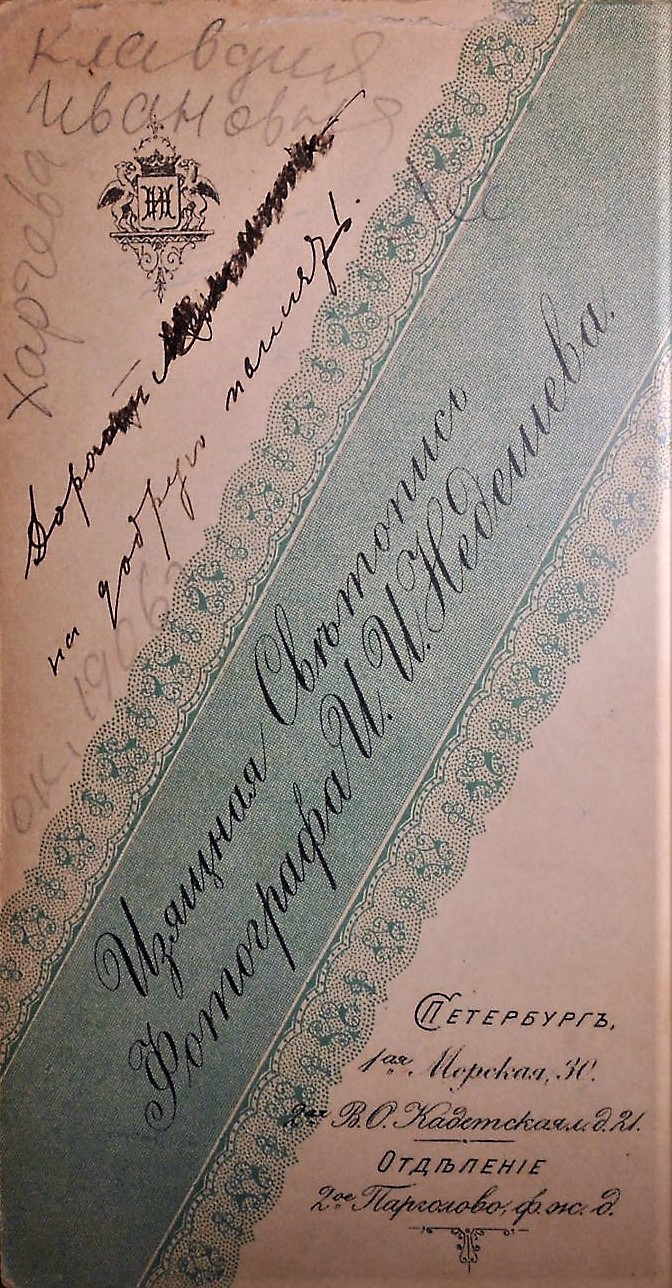 Клавдия
Ивановна
Харчева
на добрую память.
ок. 1906г
Изящная Свѣтопись
Фотографа И. И. Недешева.
СПЕТЕРБУРГЪ,
1ая Морская, 30.
2ая В.О. Кадетская л. д. 21.
ОТДѢЛЕНІЕ
2ое Парголово, ф. ж. д.